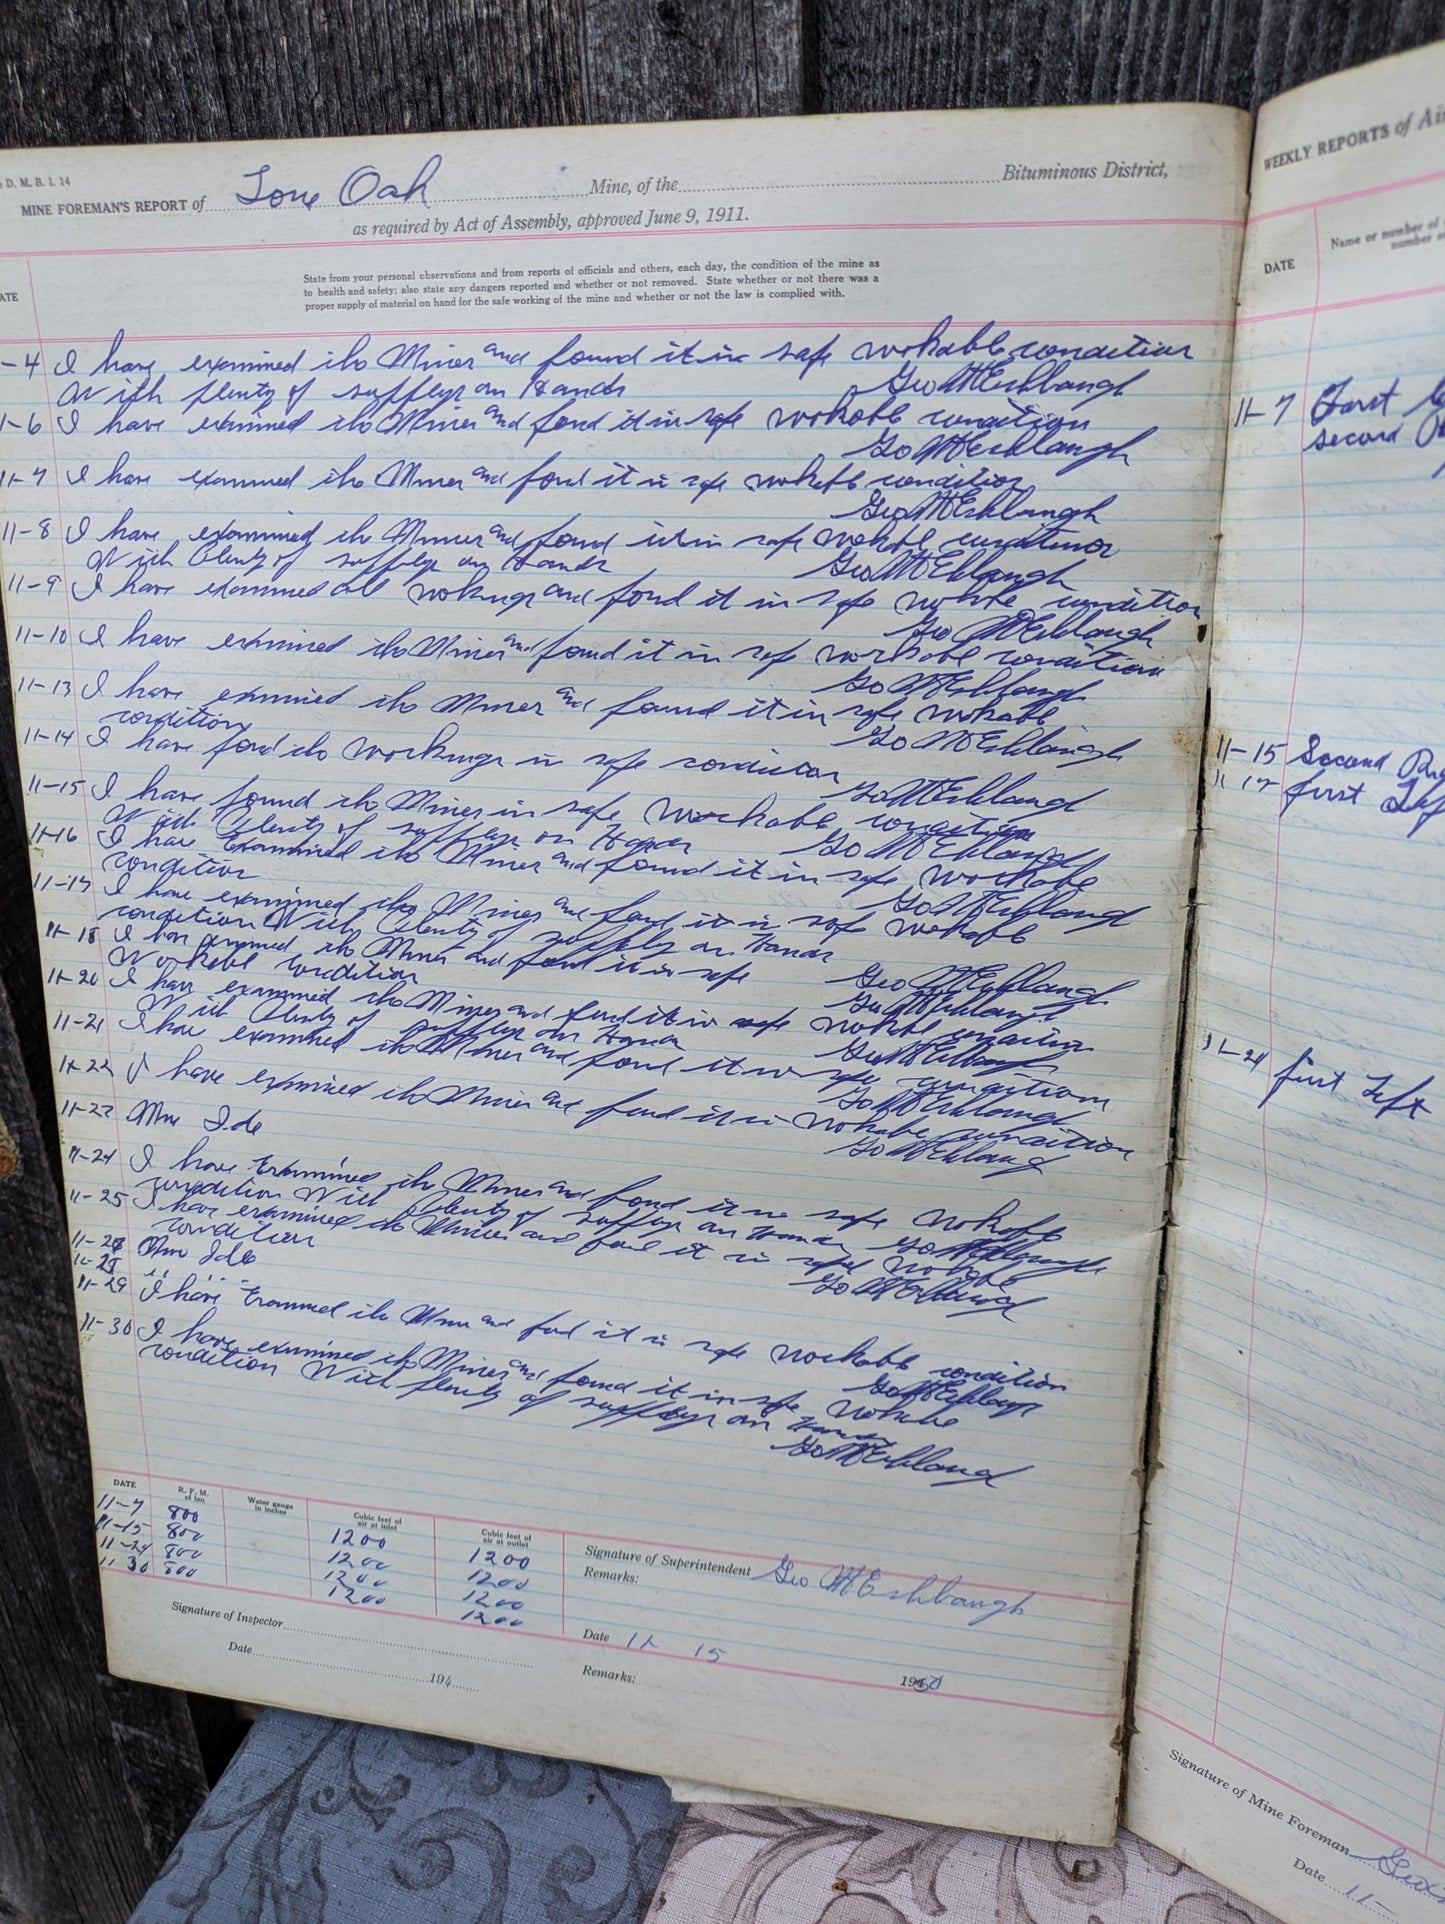 D. M. B. I. 14
MINE FOREMAN'S REPORT of Lone Oak Mine, of the Bituminous District,
as required by Act of Assembly, approved June 9, 1911.
State from your personal observations and from reports of officials and others, each day, the condition of the mine as
to health and safety; also state any dangers reported and whether or not removed. State whether or not there was a
proper supply of material on hand for the safe working of the mine and whether or not the law is complied with.
ATE
-4 I have examined the Mines and found it in safe workable condition
With plenty of supplys on Hands Geo M Eshbaugh
1-6 I have examined the Mines and fond it in safe workable condition
Geo M Eshbaugh
11-7 I have examined the Mines and fond it in safe workable condition
Geo M Eshbaugh
11-8 I have examined the Mines and fond it in safe workable condition
With Plenty of supplys on Hands Geo M Eshbaugh
11-9 I have examined all workings and fond it in safe workable condition
Geo M Eshbaugh
11-10 I have examined the Mines and found it in safe workable condition
Geo M Eshbaugh
11-13 I have examined the Mines and found it in safe workable
condition Geo M Eshbaugh
11-14 I have fond the workings in safe condition
Geo M Eshbaugh
11-15 I have found the Mines in safe workable condition
With Plenty of supplys on Hands Geo M Eshbaugh
11-16 I have Examined the Mines and found it in safe workable
condition Geo M Eshbaugh
11-17 I have examined the Mines and fond it in safe workable
condition With Plenty of supplys on Hands
11-18 I have examined the Mines and fond it in safe Geo M Eshbaugh
Workable condition Geo M Eshbaugh
11-20 I have examined the Mines and fond it in safe workable condition
With Plenty of supplys on Hands Geo M Eshbaugh
11-21 I have examined the Mines and fond it in safe condition
Geo M Eshbaugh
11-22 I have examined the Mines and fond it in workable condition
Geo M Eshbaugh
11-23 Mine Idle
11-24 I have Examined the Mines and fond it in safe workable
condition With Plenty of supplys on Hands Geo M Eshbaugh
11-25 I have examined the Mines and fond it in safe workable
condition Geo M Eshbaugh
11-27 Mine Idle
11-28 " "
11-29 I have Examined the Mine and fond it in safe workable condition
Geo M Eshbaugh
11-30 I have examined the Mines and found it in safe workable
condition With plenty of supplys on Hands
Geo M Eshbaugh
DATE R. P. M. of fan Water gauge in inches Cubic feet of air at inlet Cubic feet of air at outlet
11-7 800 1200 1200
11-15 800 1200 1200
11-24 800 1200 1200
11 30 800 1200 1200
Signature of Superintendent Geo M Eshbaugh
Remarks:
Date 11 15 1950
Remarks:
Signature of Inspector
Date 194
WEEKLY REPORTS of Ai
DATE Name or number of
number o
11-7 First
second
11-15 Second
11 17 first Lef
11-24 first Left
Signature of Mine Foreman Geo
Date 11-